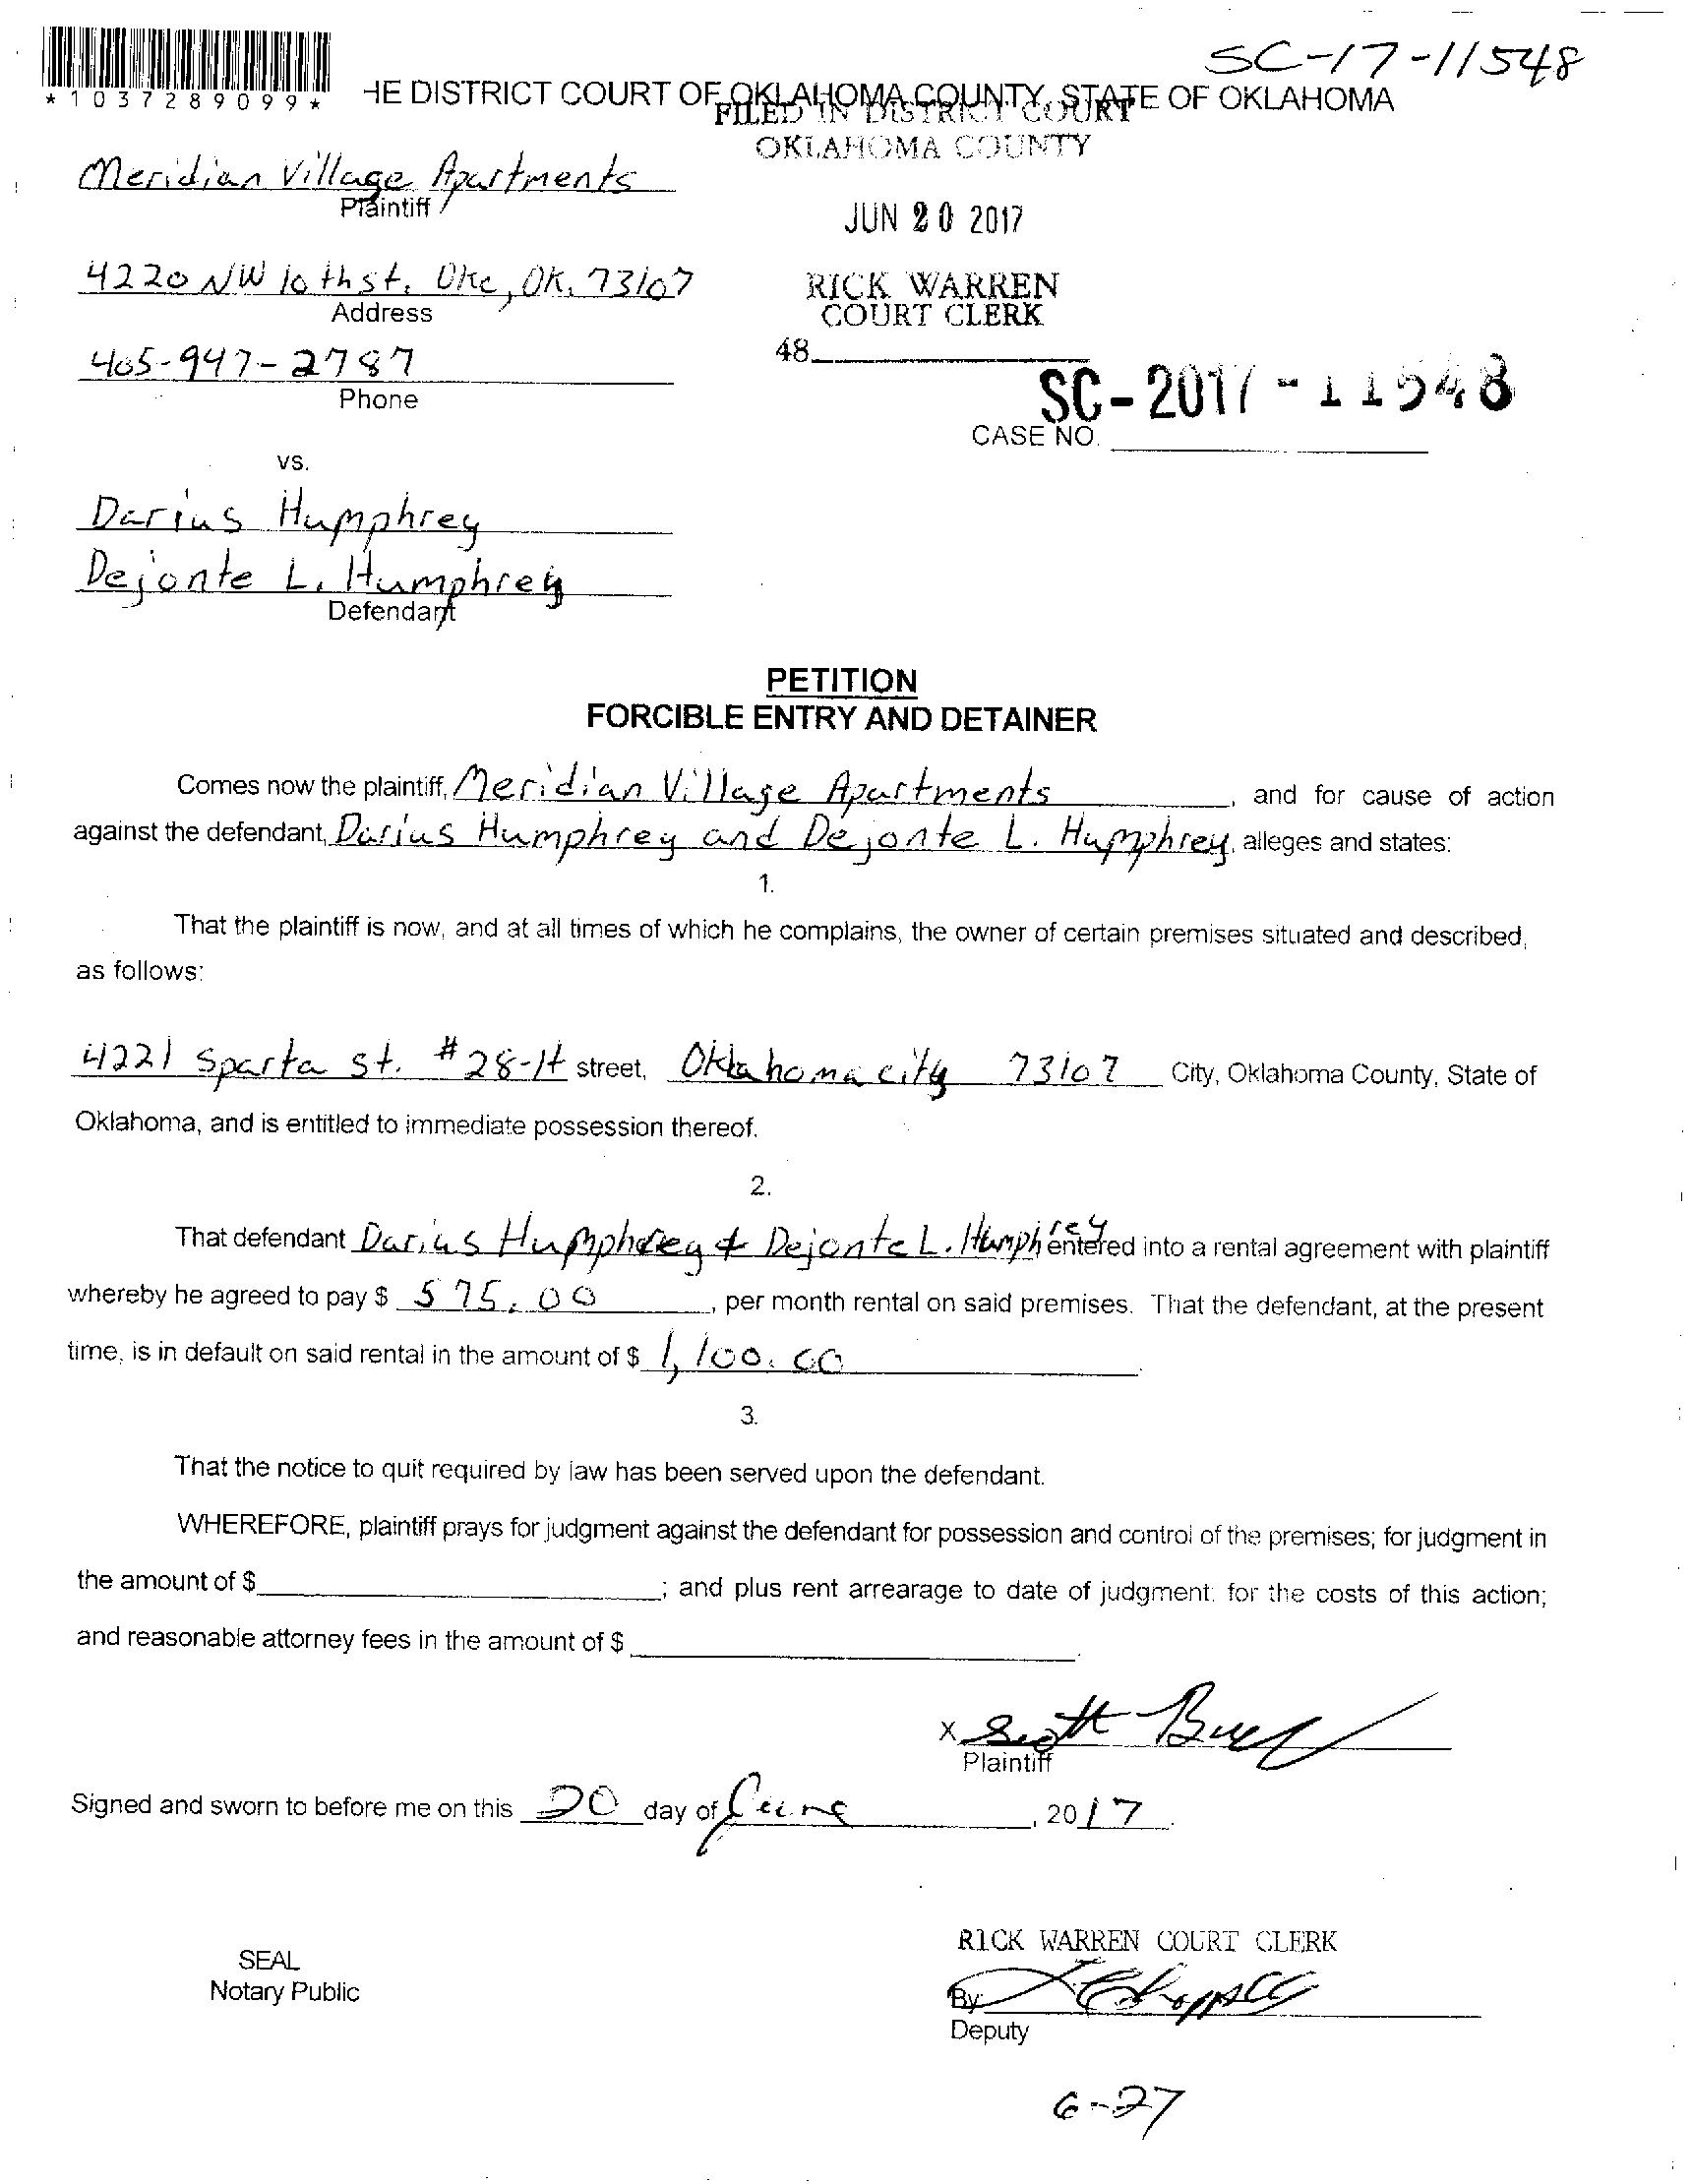 SC-17-11548
*1037289099*
HE DISTRICT COURT OF OKLAHOMA COUNTY, STATE OF OKLAHOMA
FILED IN DISTRICT COURT
OKLAHOMA COUNTY
Meridian Village Apartments
Plaintiff
JUN 20 2017
4220 NW 10th st. Okc, OK. 73107
Address
RICK WARREN
COURT CLERK
405-947-2787
Phone
48
SC-2017-11548
CASE NO.
vs.
Darius Humphrey
Dejonte L. Humphrey
Defendant
PETITION
FORCIBLE ENTRY AND DETAINER
Comes now the plaintiff, Meridian Village Apartments, and for cause of action
against the defendant, Darius Humphrey and Dejonte L. Humphrey, alleges and states:
1.
That the plaintiff is now, and at all times of which he complains, the owner of certain premises situated and described,
as follows:
4221 Sparta St. #28-H street, Oklahoma city 73107 City, Oklahoma County, State of
Oklahoma, and is entitled to immediate possession thereof.
2.
That defendant Darius Humphrey & Dejonte L. Humphrey entered into a rental agreement with plaintiff
whereby he agreed to pay $ 575.00, per month rental on said premises. That the defendant, at the present
time, is in default on said rental in the amount of $ 1,100.00.
3.
That the notice to quit required by law has been served upon the defendant.
WHEREFORE, plaintiff prays for judgment against the defendant for possession and control of the premises; for judgment in
the amount of $ ; and plus rent arrearage to date of judgment; for the costs of this action;
and reasonable attorney fees in the amount of $ .
X Scott
Plaintiff
Signed and sworn to before me on this 20 day of June, 2017.
RICK WARREN COURT CLERK
SEAL
Notary Public
By:
Deputy
6-27